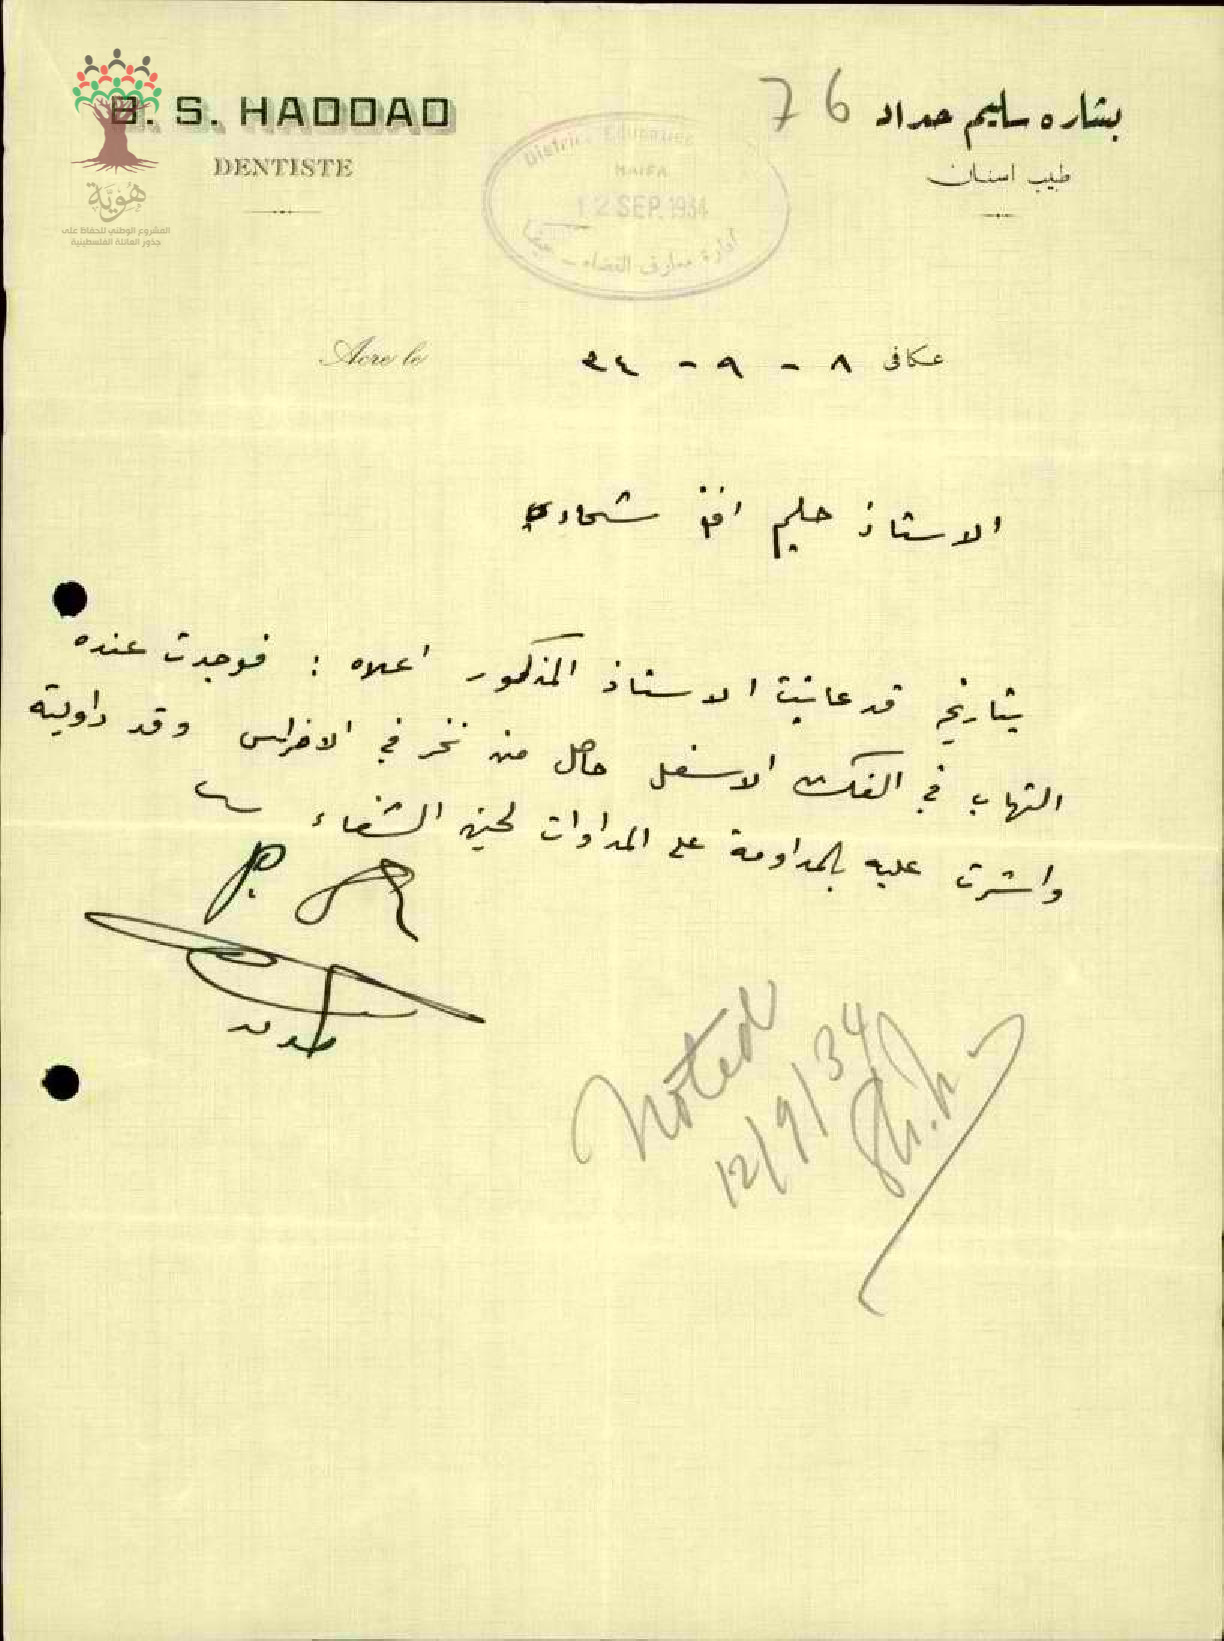 B. S. HADDAD
DENTISTE
76
بشاره سليم حداد
طبيب اسنان
هوية
المشروع الوطني للحفاظ على
جذور العائلة الفلسطينية
District Education
HAIFA
12 SEP. 1934
ادارة معارف القضاء - حيفا
Acre le
عكا في ٨ - ٩ - ٣٤
الاستاذ حليم افندي شحادي
بتاريخه قد عاينت الاستاذ المذكور اعلاه : فوجدت عنده
التهاب في الفك الاسفل حاصل من نخر في الاضراس وقد داويته
واشرت عليه بالمداومة على المداوات لحين الشفاء
Noted
12/9/34